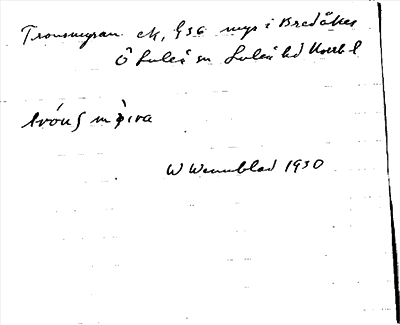 Tronsmyran ek, G36 myr i Bredåker
Ö Luleå sn Luleå hd Norrb l
W Wennblad 1930